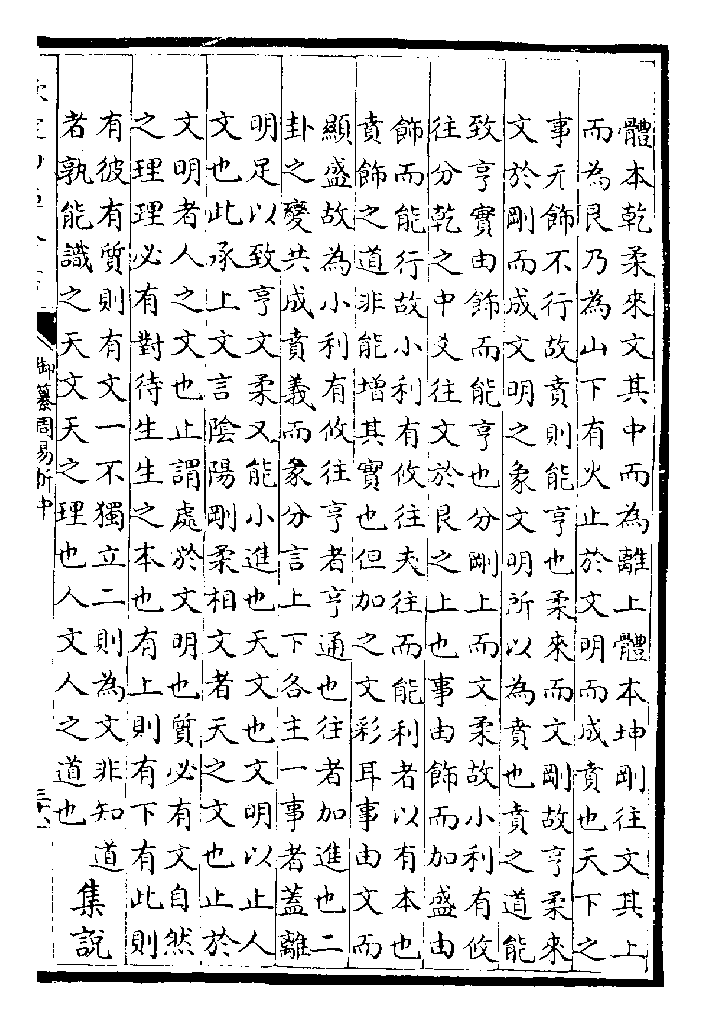 體本乾柔來文其中而為離上體本坤剛往文其上
而為艮乃為山下有火止於文明而成賁也天下之
事无飾不行故賁則能亨也柔來而文剛故亨柔來
文於剛而成文明之象文明所以為賁也賁之道能
致亨實由飾而能亨也分剛上而文柔故小利有攸
往分乾之中爻往文於艮之上也事由飾而加盛由
飾而能行故小利有攸往夫往而能利者以有本也
賁飾之道非能增其實也但加之文彩耳事由文而
顯盛故為小利有攸往亨者亨通也往者加進也二
卦之變共成賁義而彖分言上下各主一事者蓋離
明足以致亨文柔又能小進也天文也文明以止人
文也此承上文言陰陽剛柔相文者天之文也止於
文明者人之文也止謂處於文明也質必有文自然
之理理必有對待生生之本也有上則有下有此則
有彼有質則有文一不獨立二則為文非知道
者孰能識之天文天之理也人文人之道也
集說
御纂周易折中